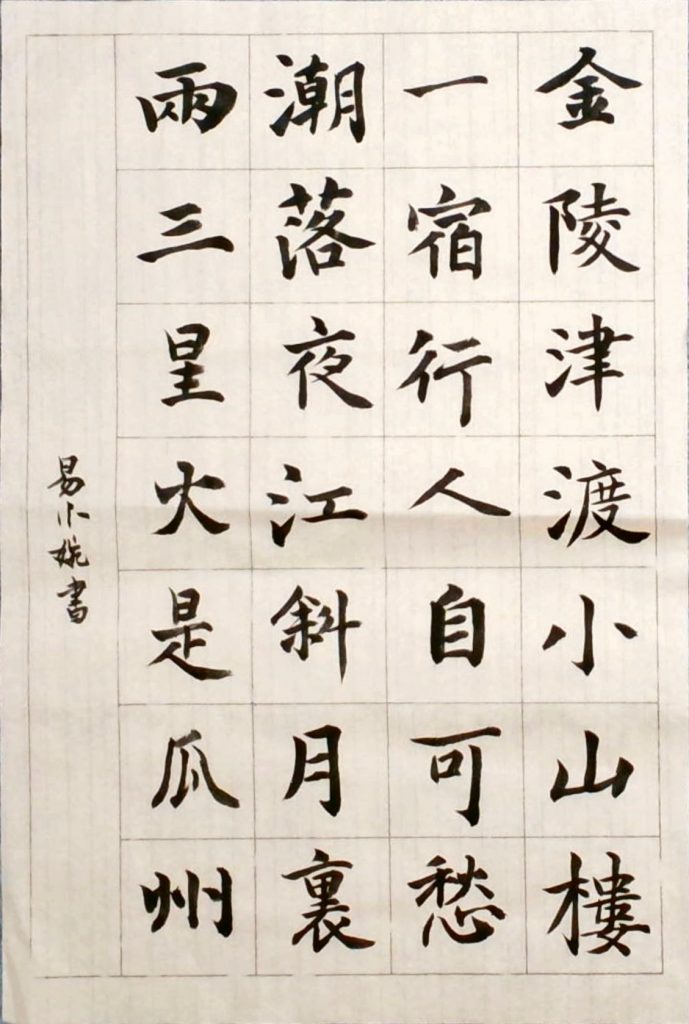 金陵津渡小山樓
一宿行人自可愁
潮落夜江斜月裏
兩三星火是瓜州
易小婉書